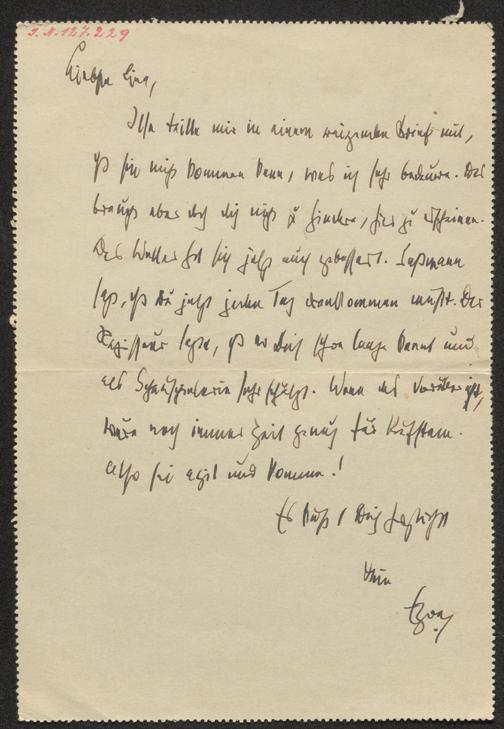 I.N. 127.229
Liebste Lina,
Ilse teilte mir in einem reizenden Brief mit,
daß sie nicht kommen kann, was ich sehr bedaure. Das
braucht aber doch dich nicht zu hindern, hier zu erscheinen.
Das Wetter hat sich jetzt auch gebessert.
sagt, daß Du jetzt jeden Tag drankommen mußt. Der
Regisseur sagte, daß er Dich schon lange kennt und
als Schauspielerin sehr schätzt. Wenn das vorüber ist,
wäre noch immer Zeit genug für Kufstein.
Also sei agil und komme!
Es küßt Dich herzlichst
Dein
Egon